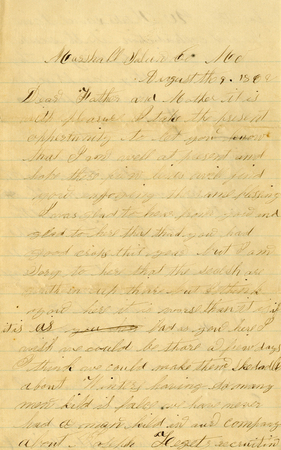 Marshall Saline Co Mo
August the 9. 186
Dear Father and Mother it is
with pleasure I take the present
oppertunity to let you know
that I am well at present and
hope these few lines will find
you injoying the same blessing
I was glad to here from you and
glad to here that you had
good crops this year but I am
sory to here that the secesh are
out there
again here it is worse than it
it is as bad as you here I
wish we could be there a few days
I think we could make them skedadle
about Ninety having so many
men kild is false we have never
had a man kild in our company
about Joseph recruiting